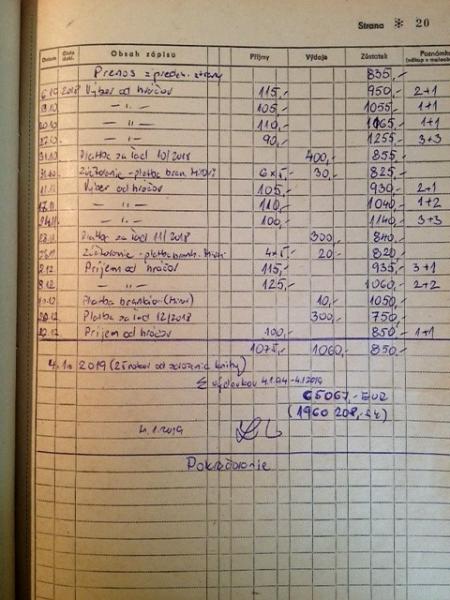 Strana * 20
Dátum Číslo dokl. Obsah zápisu Príjmy Výdaje Zostatok Poznámka
Prenos z predch. strany 835,-
6.10 2018 Výber od hráčov 115,- 950,- 2+1
13.10 — " — 105,- 1055,- 1+1
20.10 — " — 110,- 1165,- 1+1
27.10 — " — 90,- 1255,- 3+3
31.10 Platba za ľad 10/2018 400,- 855,-
31.10 Zúčtovanie - platba brank. 6x5,- 30,- 825,-
Výber od hráčov 105,- 930,- 2+1
17.11. — " — 110,- 1040,- 1+2
24.11. — " — 100,- 1140,- 3+3
Platba za ľad 11/2018 300,- 840,-
Zúčtovanie - platba brank. 4x5,- 20,- 820,-
Príjem od hráčov 115,- 935,- 3+1
— " — 125,- 1060,- 2+2
Platba brankár 10,- 1050,-
Platba za ľad 12/2018 300,- 750,-
22.12. Príjem od hráčov 100,- 850,- 1+1
1075,- 1060,- 850,-
4.1. 2019 (25 rokov od založenia knihy)
Σ výdavkov 4.1.94 - 4.1.2019
65067,- EUR
(1960 208,- Sk)
4.1.2019
Pokračovanie